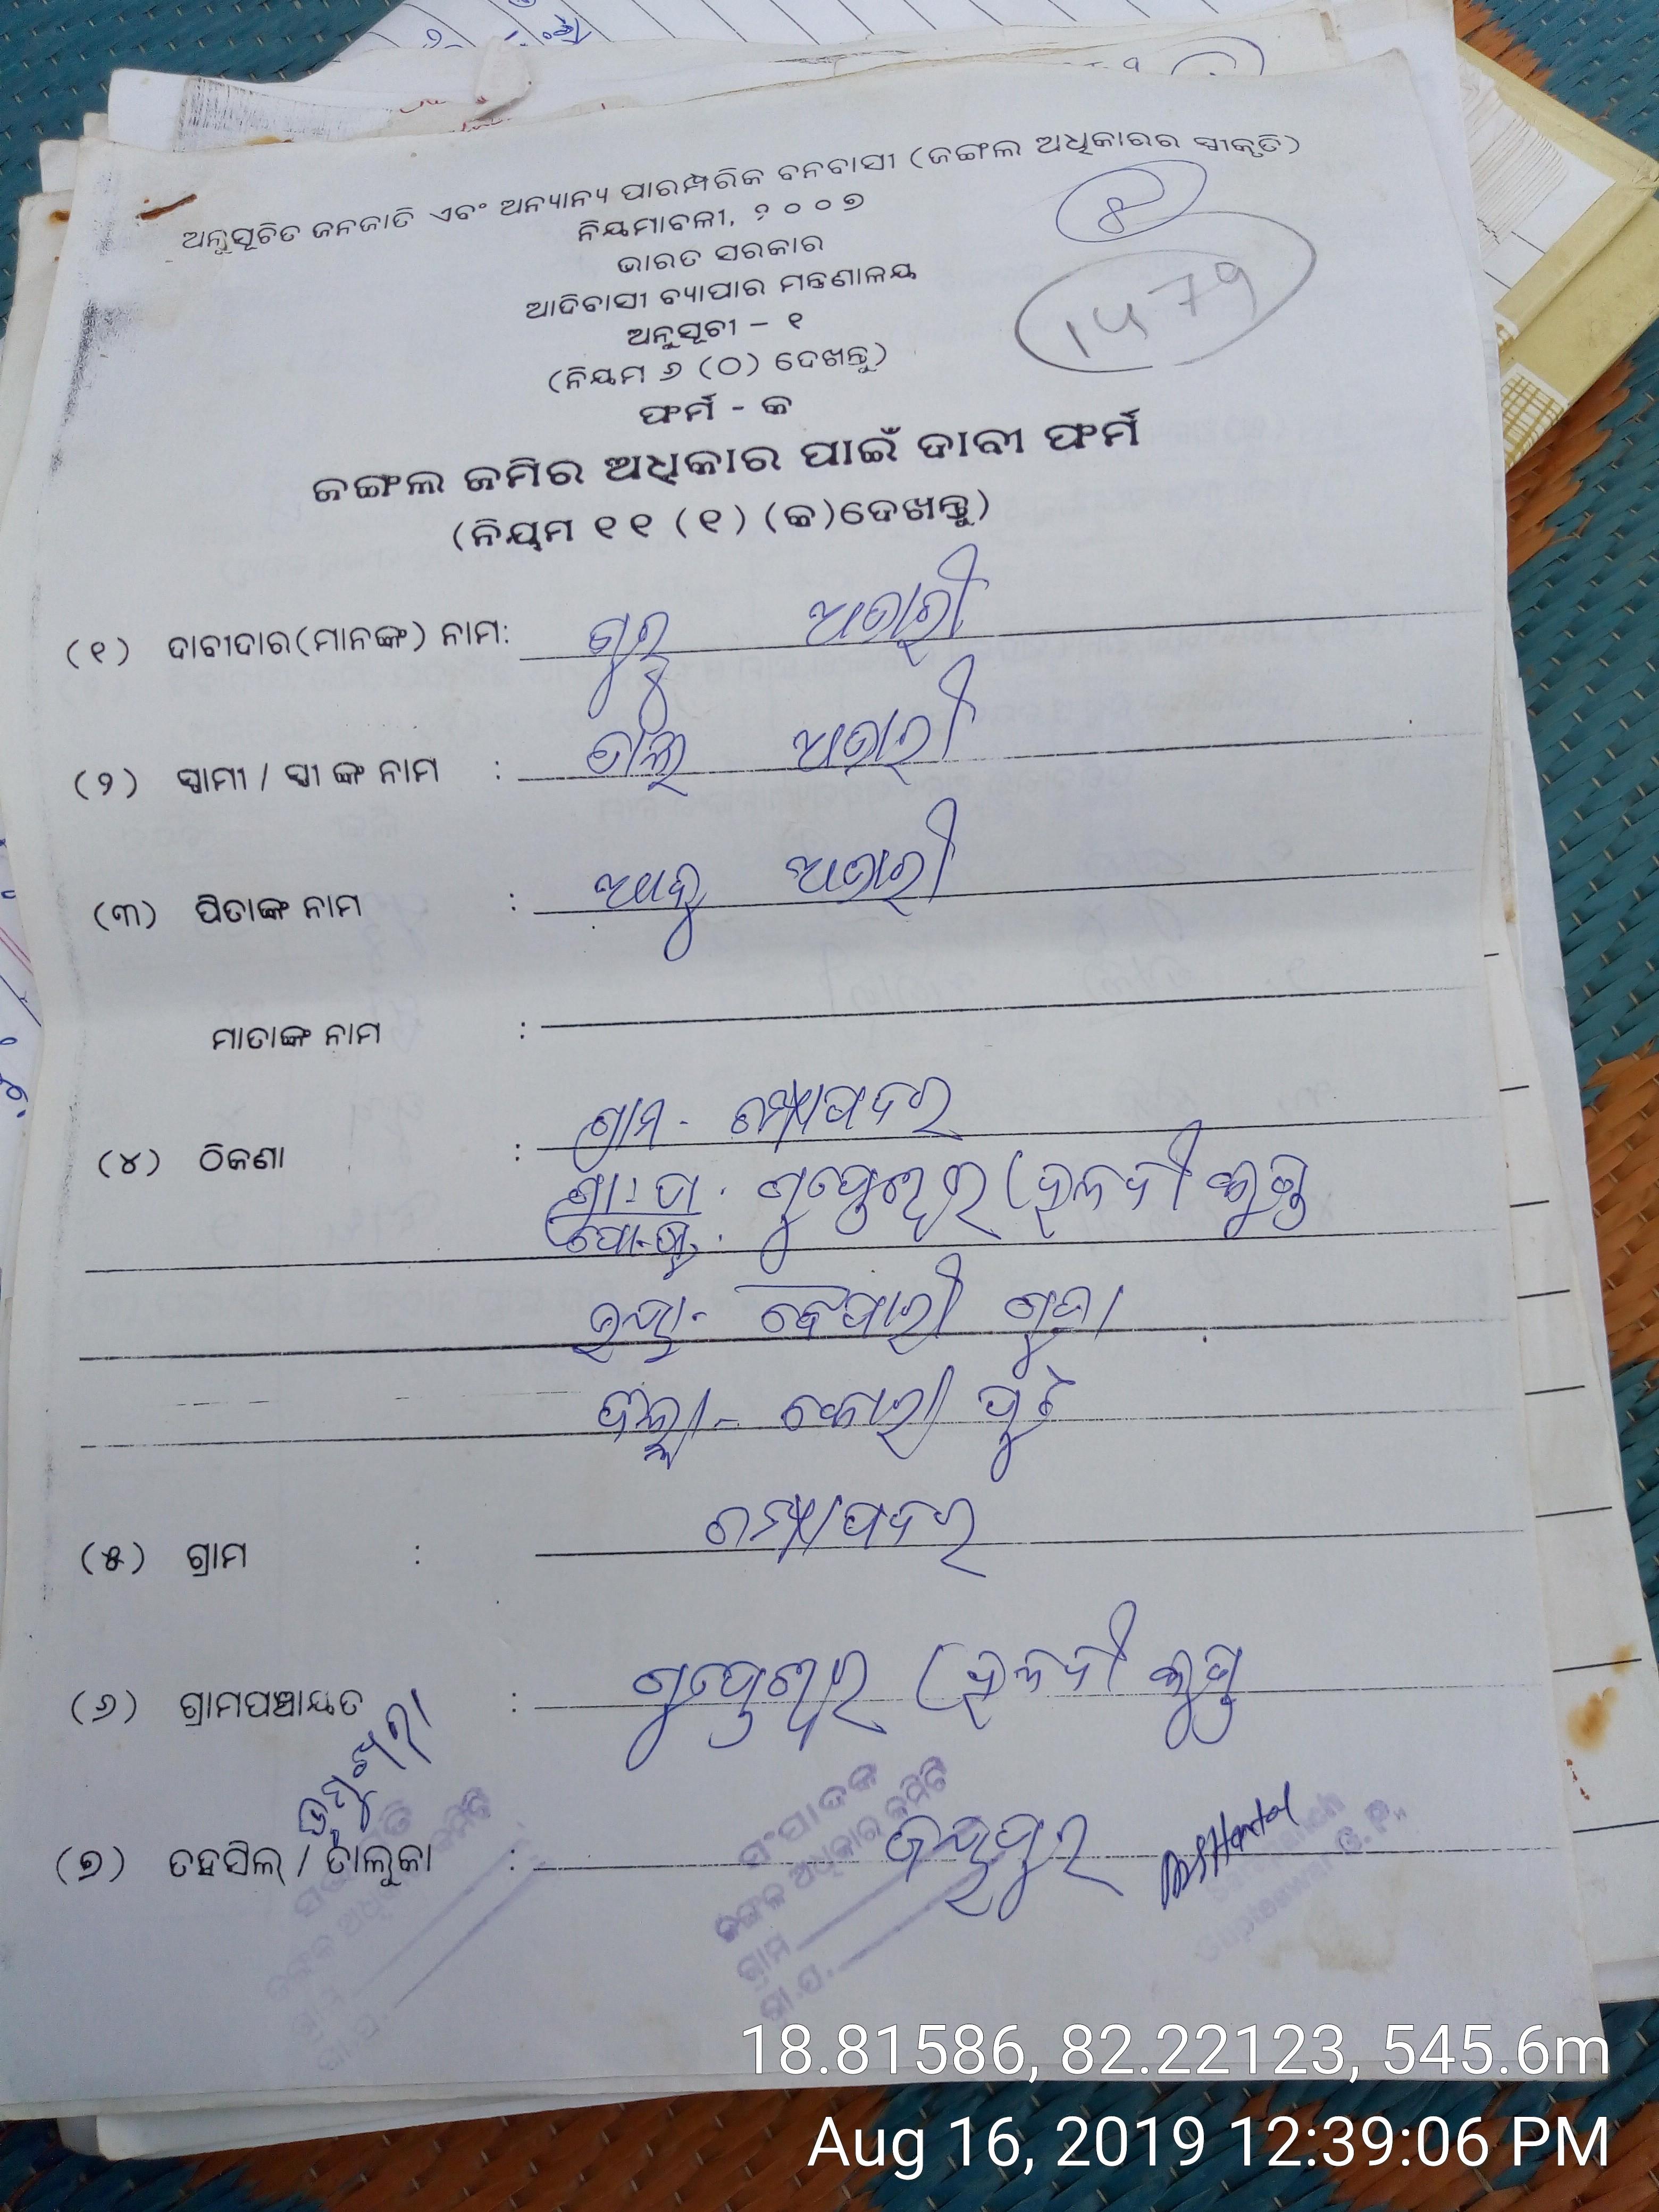 ଅନୁସୂଚିତ ଜନଜାତି ଏବଂ ଅନ୍ୟାନ୍ୟ ପାରମ୍ପରିକ ବନବାସୀ (ଜଙ୍ଗଲ ଅଧିକାରର ସ୍ୱୀକୃତି)
ନିୟମାବଳୀ, ୨୦୦୭
ଭାରତ ସରକାର
ଆଦିବାସୀ ବ୍ୟାପାର ମନ୍ତ୍ରଣାଳୟ
ଅନୁସୂଚୀ – ୧
(ନିୟମ ୬ (୦) ଦେଖନ୍ତୁ)
ଫର୍ମ - କ
୪
1479
ଜଙ୍ଗଲ ଜମିର ଅଧିକାର ପାଇଁ ଦାବୀ ଫର୍ମ
(ନିୟମ ୧୧ (୧) (କ)ଦେଖନ୍ତୁ)
(୧) ଦାବୀଦାର(ମାନଙ୍କ) ନାମ: ଗୁରୁ
(୨) ସ୍ୱାମୀ / ସ୍ତ୍ରୀ ଙ୍କ ନାମ :
(୩) ପିତାଙ୍କ ନାମ :
ମାତାଙ୍କ ନାମ :
(୪) ଠିକଣା : ଗ୍ରାମ - ଚମ୍ପାପଦର
ଗ୍ରା: ପ. ଗୁପ୍ତେଶ୍ୱର (ହଳଦୀ କୁଣ୍ଡ
ପୋ.
ବୈପାରୀ ଗୁଡା
ଜିଲ୍ଲା - କୋରାପୁଟ
(୫) ଗ୍ରାମ : ଚମ୍ପାପଦର
(୬) ଗ୍ରାମପଞ୍ଚାୟତ : ଗୁପ୍ତେଶ୍ୱର (ହଳଦୀ କୁଣ୍ଡ
(୭) ତହସିଲ୍ / ତାଲୁକା : ଜୟପୁର
ସଂପାଦକ
ଜଙ୍ଗଲ ଅଧିକାର କମିଟି
ଗ୍ରାମ
ଗ୍ରା.ପ.
Sarapanch
Gupteswar G. P.
18.81586, 82.22123, 545.6m
Aug 16, 2019 12:39:06 PM